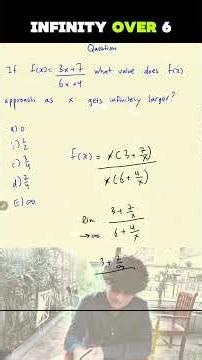 INFINITY OVER 6
Question
If f(x) = 3x+7 / 6x+4 what value does f(x)
approach as x gets infinitely larger?
a) 0
f(x) = x(3 + 7/x) / x(6 + 4/x)
c) 3/4
d) 7/4
E) ∞
lim →∞ 3 + 7/x / 6 + 4/x
3 + 7/∞